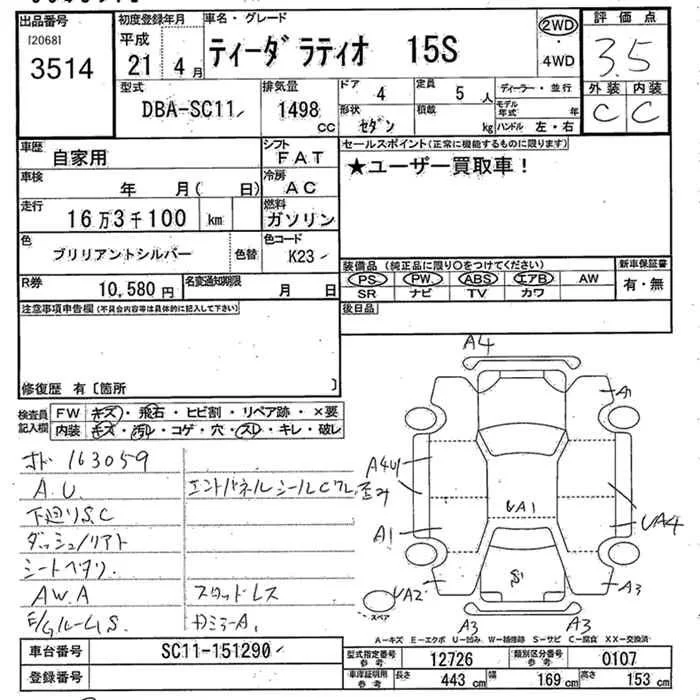 出品番号 初度登録年月 車名・グレード 2WD 評価点
[2068] 平成 ティーダラティオ 15S ・ 3.5
3514 21年 4月 4WD 外装 内装
型式 排気量 ドア 4 定員 5人 ディーラー・並行 C C
DBA-SC11 1498cc 形状 セダン 積載 kg モデル年式 年
ハンドル 左・右
車歴 自家用 シフト FAT セールスポイント(正常に機能するものに限ります)
車検 年 月( 日) 冷房 AC ★ユーザー買取車!
走行 16万3千100 km 燃料 ガソリン
色 ブリリアントシルバー 色替 色コード K23
装備品 (純正品に限り○をつけてください) 新車保証書
R券 10,580円 名変通知期限 月 日 PS PW ABS エアB AW 有・無
SR ナビ TV カワ
注意事項申告欄(不具合内容等は具体的に記入して下さい) 後日品
修復歴 有〔箇所 〕
検査員記入欄 FW キズ・飛石・ヒビ割・リペア跡・×要
内装 キズ・汚れ・コゲ・穴・スレ・キレ・破レ
ホド 163059
A.U. エンドパネルシールCワレ,歪み
下廻りS.C
ダッシュノリアト
シートヘタリ.
A.W.A スタッドレス
E/GルームS. カミラーA.
A4
A1
A4U1
A1
UA1
UA4
UA2
S1
A3
A3
A3
スペア
A−キズ E−エクボ U−凹み W−補修跡 S−サビ C−腐食 XX−交換済
車台番号 SC11-151290 型式指定番号 参考 12726 類別区分番号 参考 0107
登録番号 車庫証明用 参考 長さ 443 cm 幅 169 cm 高さ 153 cm